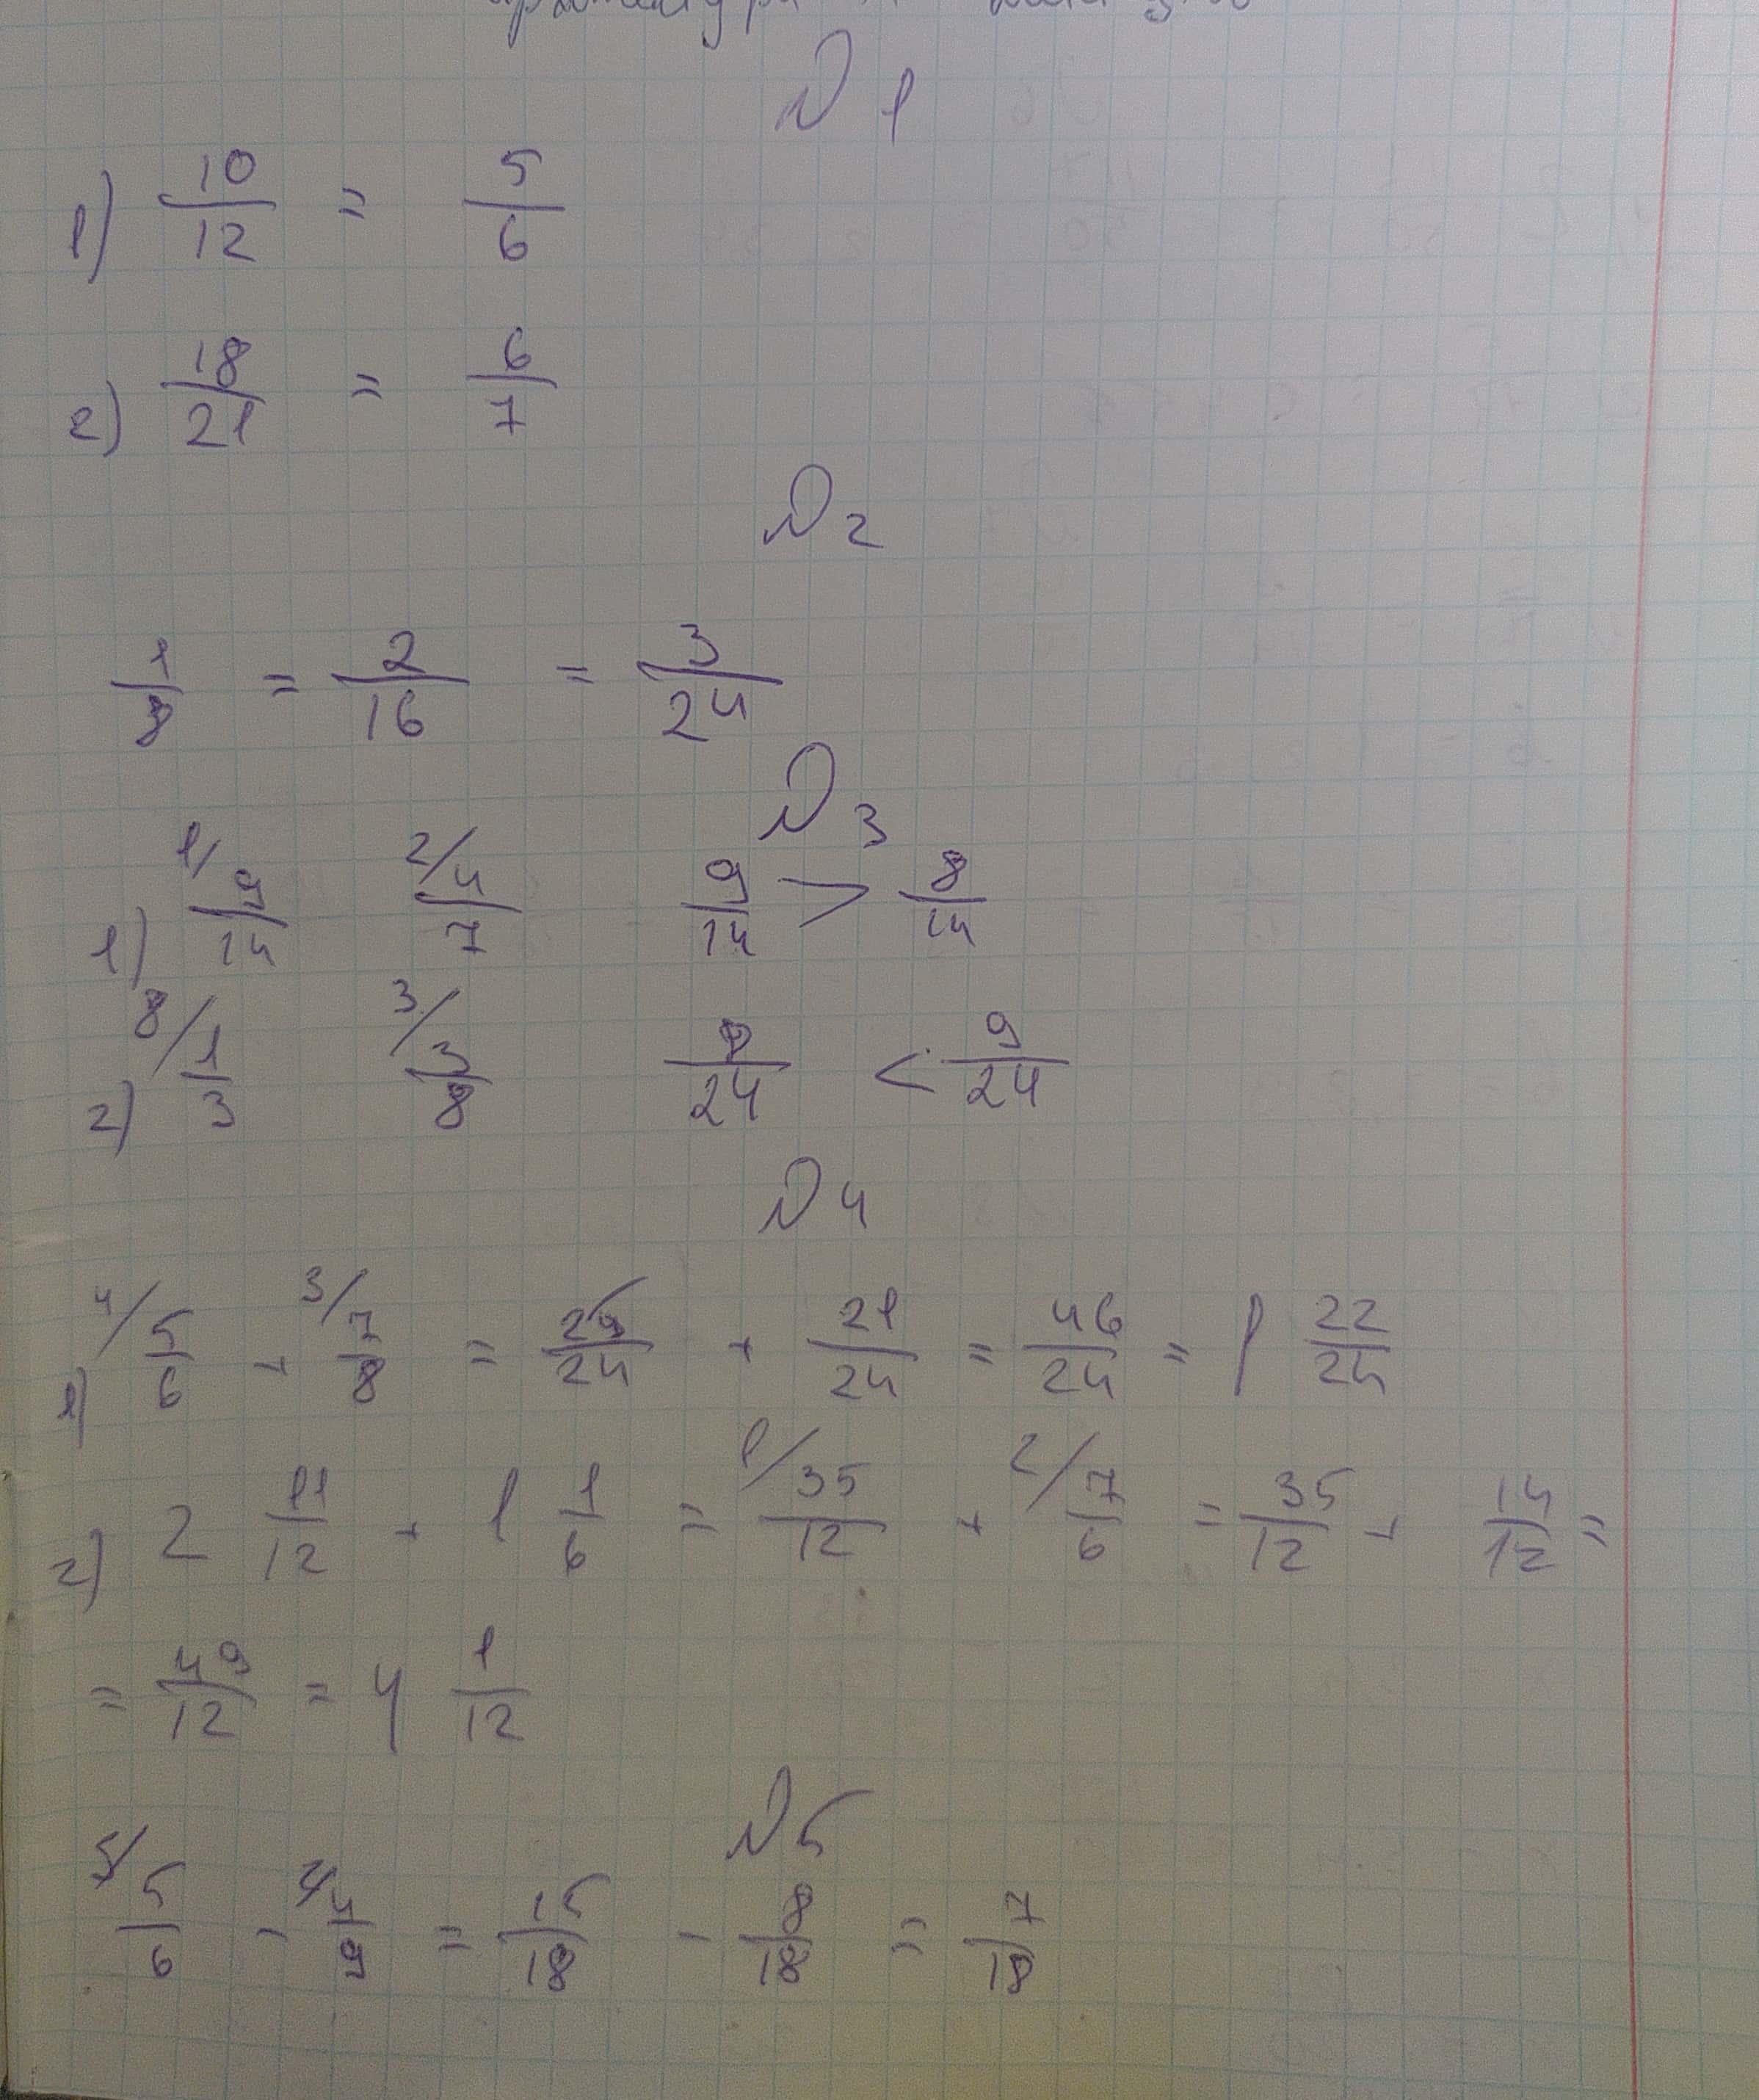 № 1
1) 10/12 = 5/6
2) 18/21 = 6/7
№ 2
1/8 = 2/16 = 3/24
№ 3
1) 1/ 9/14 2/ 4/7 9/14 > 8/14
2) 8/ 1/3 3/ 3/8 8/24 < 9/24
№ 4
1) 4/ 5/6 + 3/ 7/8 = 25/24 + 21/24 = 46/24 = 1 22/24
2) 2 11/12 + 1 1/6 = 1/ 35/12 + 2/ 7/6 = 35/12 + 14/12 =
= 49/12 = 4 1/12
№ 5
5/6 - 4/9 = 15/18 - 8/18 = 7/18